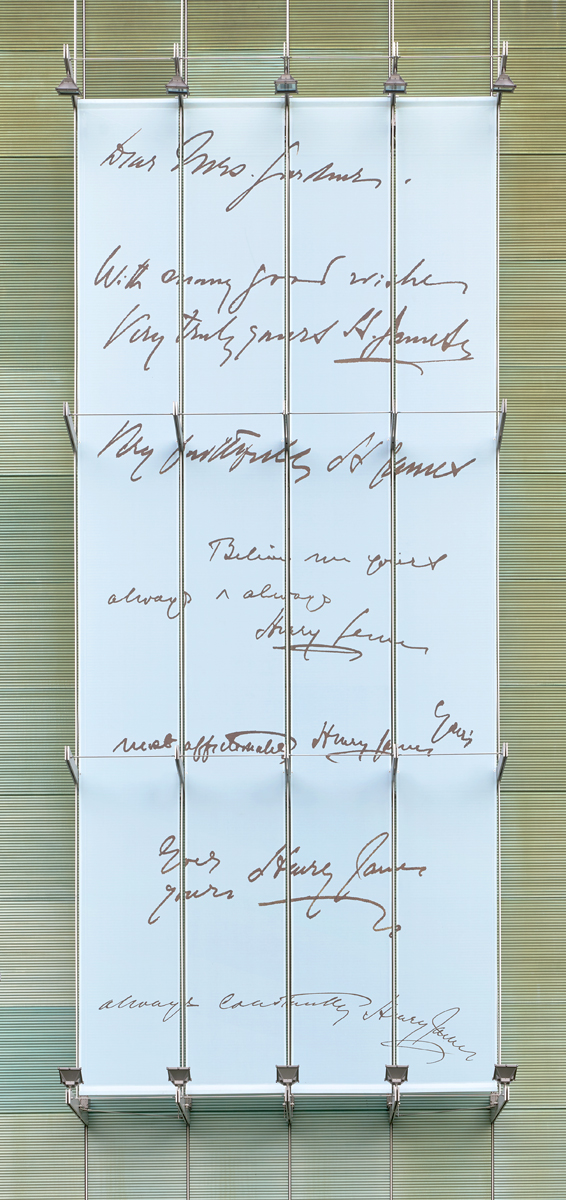 Dear Mrs. Gardner.
With many good wishes
Very truly yours H. James
Very faithfully H James
Believe me yours
always & always
Henry James
Yours
most affectionately Henry James
Ever
yours Henry James
always constantly Henry James